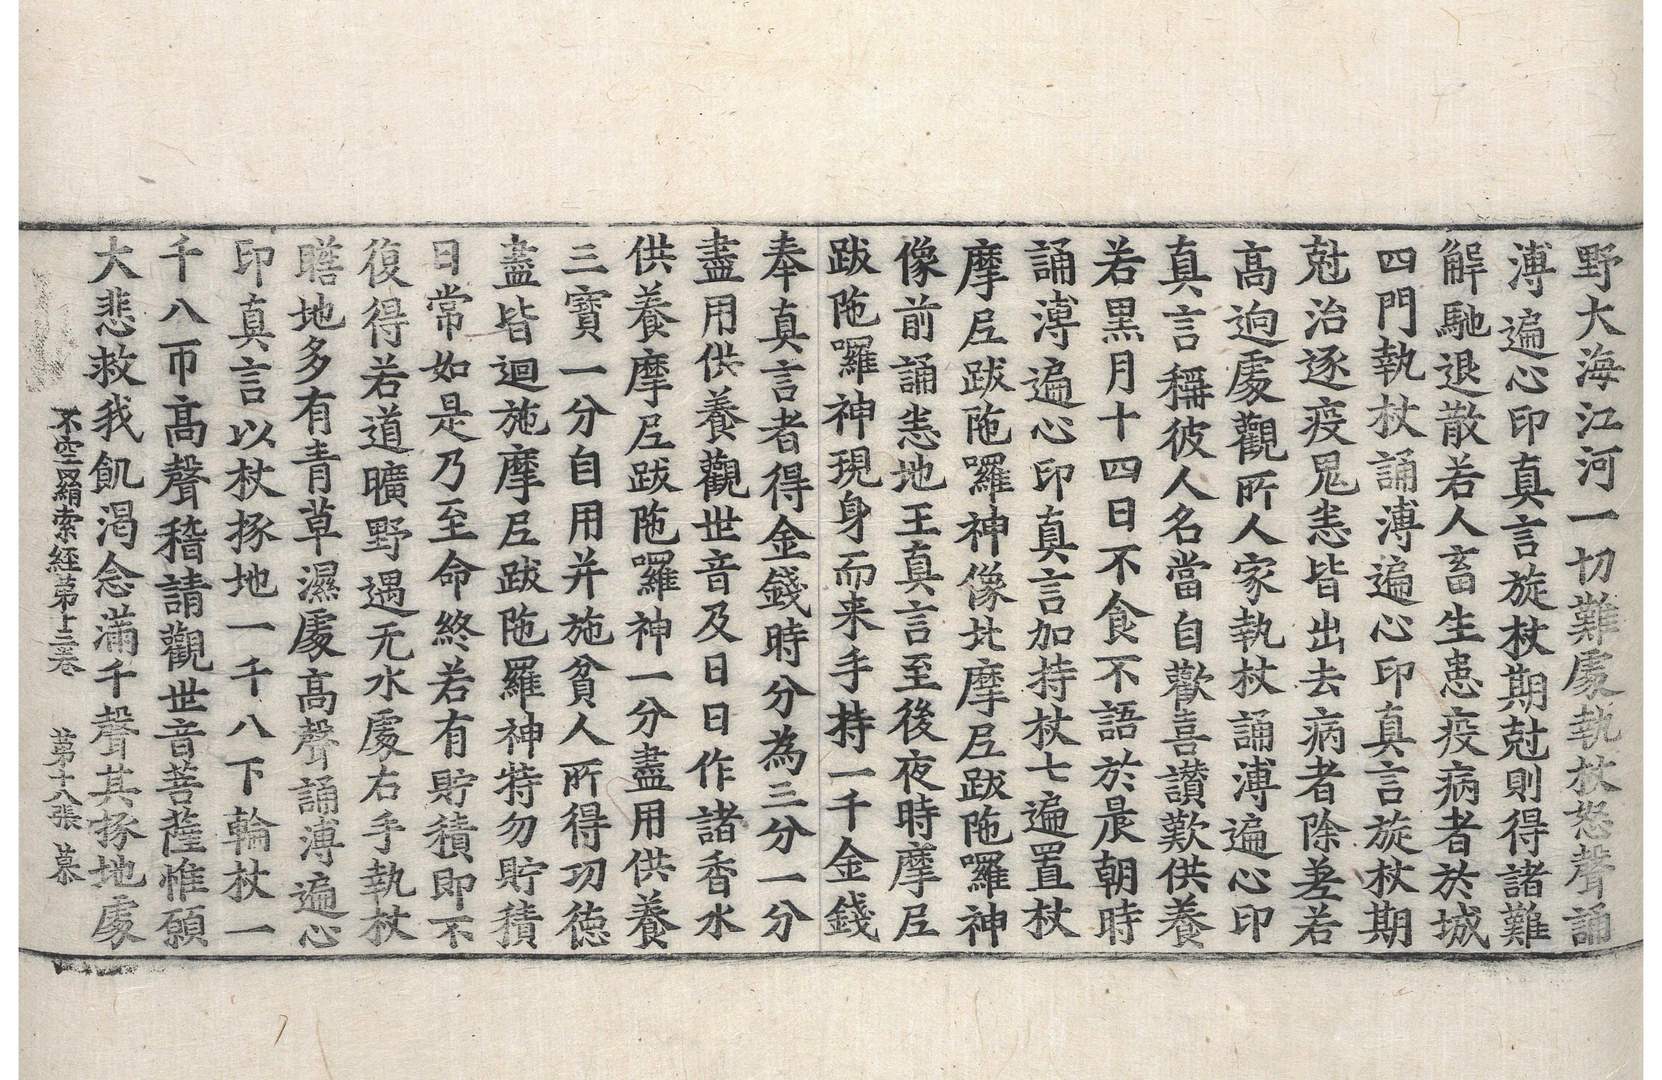 野大海江河一切難處執杖怒聲誦
溥遍心印真言旋杖期尅則得諸難
解馳退散若人畜生患疫病者於城
四門執杖誦溥遍心印真言旋杖期
尅治逐疫鬼恙皆出去病者除差若
高逈處觀所人家執杖誦溥遍心印
真言稱彼人名當自歡喜讃歎供養
若黑月十四日不食不語於晨朝時
誦溥遍心印真言加持杖七遍置杖
摩尼跋陁囉神像北摩尼跋陁囉神
像前誦恙地王真言至後夜時摩尼
跋陁囉神現身而来手持一千金錢
奉真言者得金錢時分為三分一分
盡用供養觀世音及日日作諸香水
供養摩尼跋陁囉神一分盡用供養
三寶一分自用并施貧人所得功德
盡皆迴施摩尼跋陁羅神特勿貯積
日常如是乃至命終若有貯積即不
復得若道曠野遇无水處右手執杖
瞎地多有青草濕處高聲誦溥遍心
印真言以杖揬地一千八下輪杖一
千八帀高聲稽請觀世音菩薩惟願
大悲救我飢渴念滿千聲其揬地處
不空羂索經第十三卷 第十八張 慕